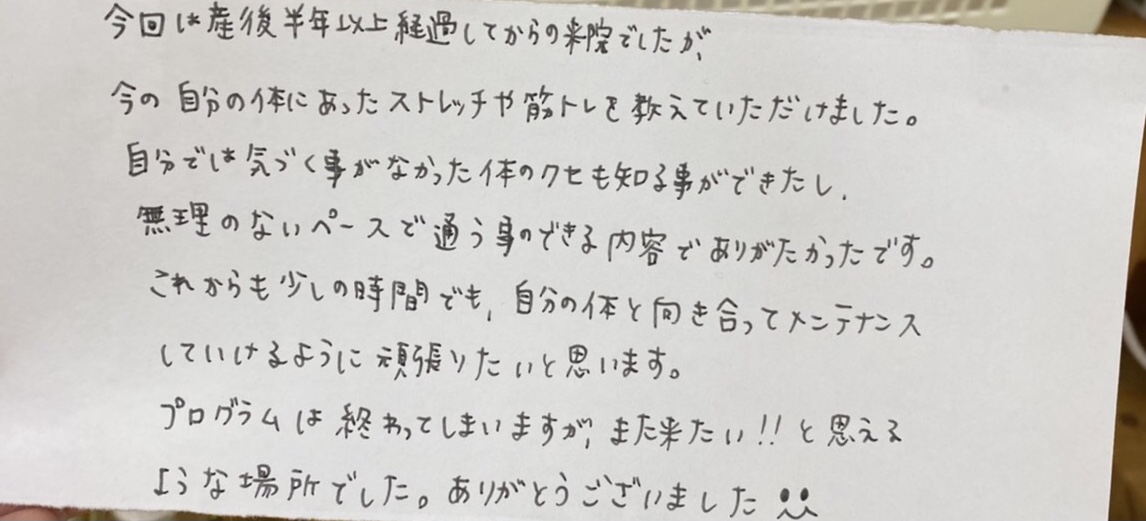 今回は産後半年以上経過してからの来院でしたが、
今の自分の体にあったストレッチや筋トレを教えていただけました。
自分では気づく事がなかった体のクセも知る事ができたし、
無理のないペースで通う事のできる内容でありがたかったです。
これからも少しの時間でも、自分の体と向き合ってメンテナンス
していけるように頑張りたいと思います。
プログラムは終わってしまいますが、また来たい!!と思える
ような場所でした。ありがとうございました